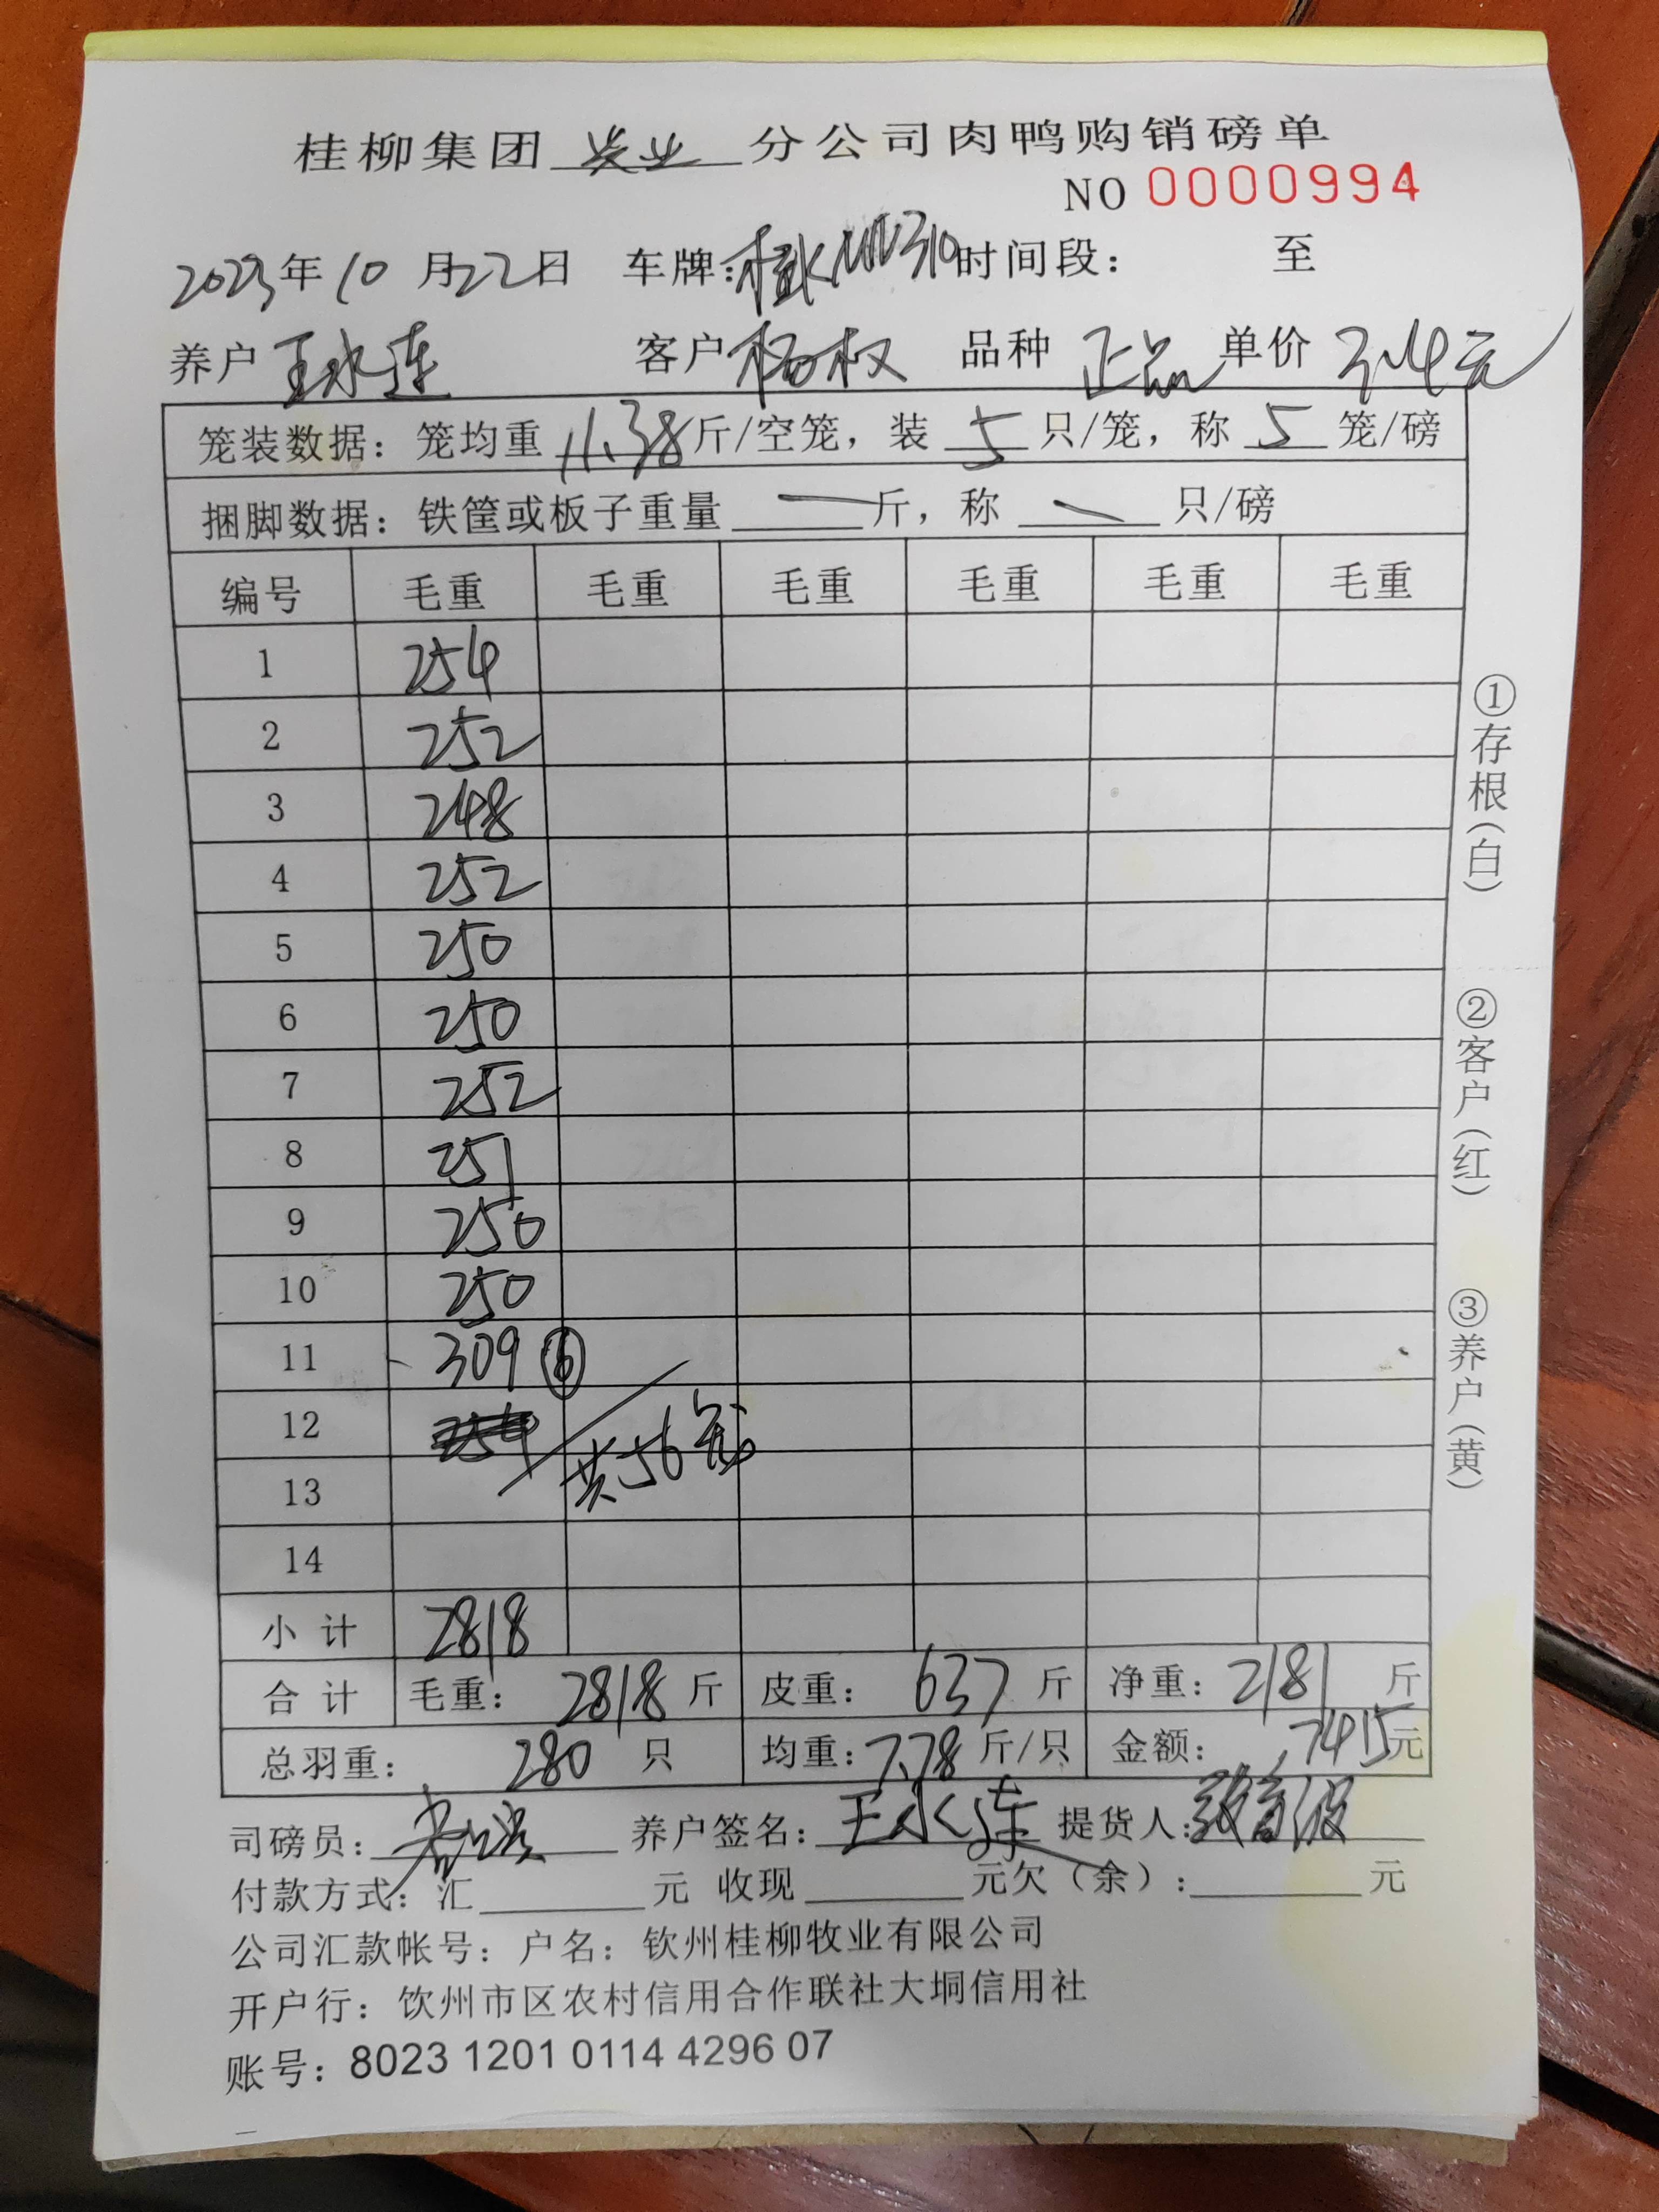 桂柳集团 牧业 分公司肉鸭购销磅单
NO 0000994
2023年10月22日 车牌:桂K 310 时间段: 至
养户 王永连 客户 杨权 品种 正品 单价 3.4元
笼装数据: 笼均重 11.38 斤/空笼, 装 5 只/笼, 称 5 笼/磅
捆脚数据: 铁筐或板子重量 — 斤, 称 — 只/磅
编号 毛重 毛重 毛重 毛重 毛重 毛重
1 254
2 252
3 248
4 252
5 250
6 250
7 252
8 251
9 250
10 250
11 309 ⑥
12
共56笼
13
14
小计 2818
合计 毛重: 2818 斤 皮重: 637 斤 净重: 2181 斤
总羽重: 280 只 均重: 7.78 斤/只 金额: 7415元
司磅员: 养户签名: 王永连 提货人:
付款方式: 汇 元 收现 元欠(余): 元
公司汇款帐号: 户名: 钦州桂柳牧业有限公司
开户行: 钦州市区农村信用合作联社大垌信用社
账号: 8023 1201 0114 4296 07
①存根(白)
②客户(红)
③养户(黄)